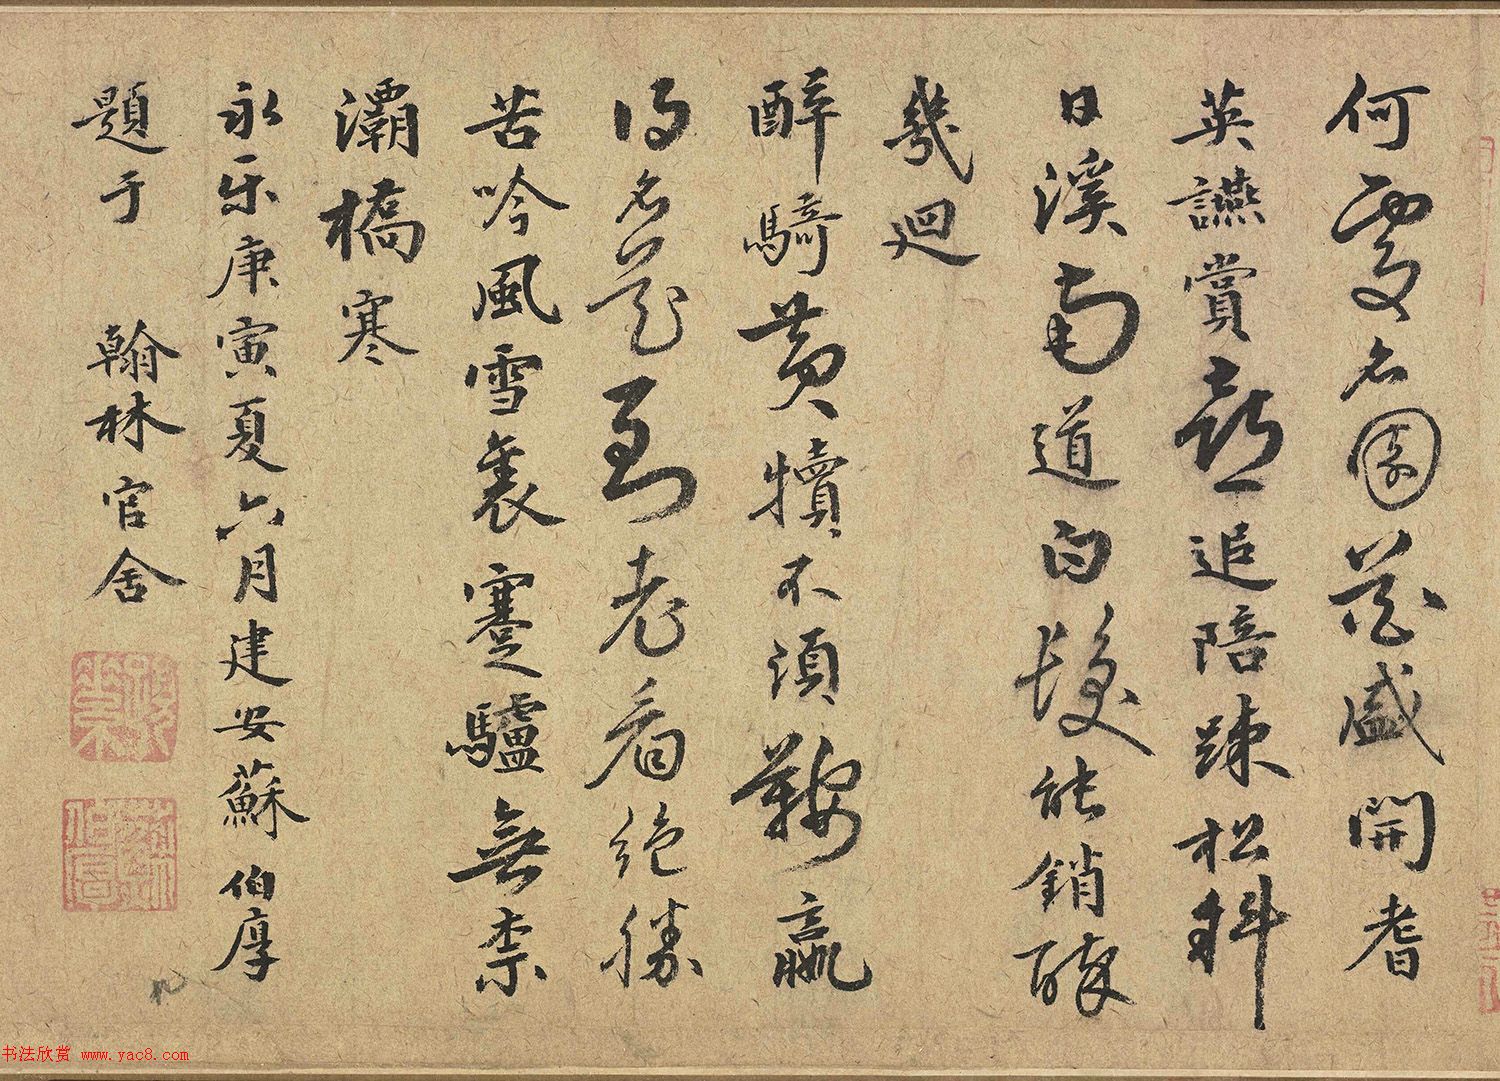 何處名園花盛開耆
英讌賞追陪踈松斜
日溪南道白髮能銷醉
幾迴
醉騎黃犢不須鞍贏
得名花到老看絕勝
苦吟風雪裏蹇驢無柰
灞橋寒
永乐庚寅夏六月建安蘇伯厚
題于 翰林官舍
书法欣赏 www.yac8.com